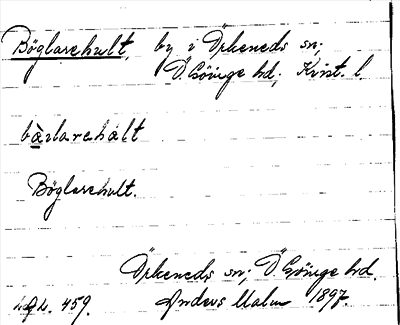 Böglarehult, by i Örkeneds sn;
Ö. Göinge hd; Krist. l.
bàvlarehàlt
Böglarehult.
Örkeneds sn; Ö. Göinge hd.
459. Anders Malm 1897.